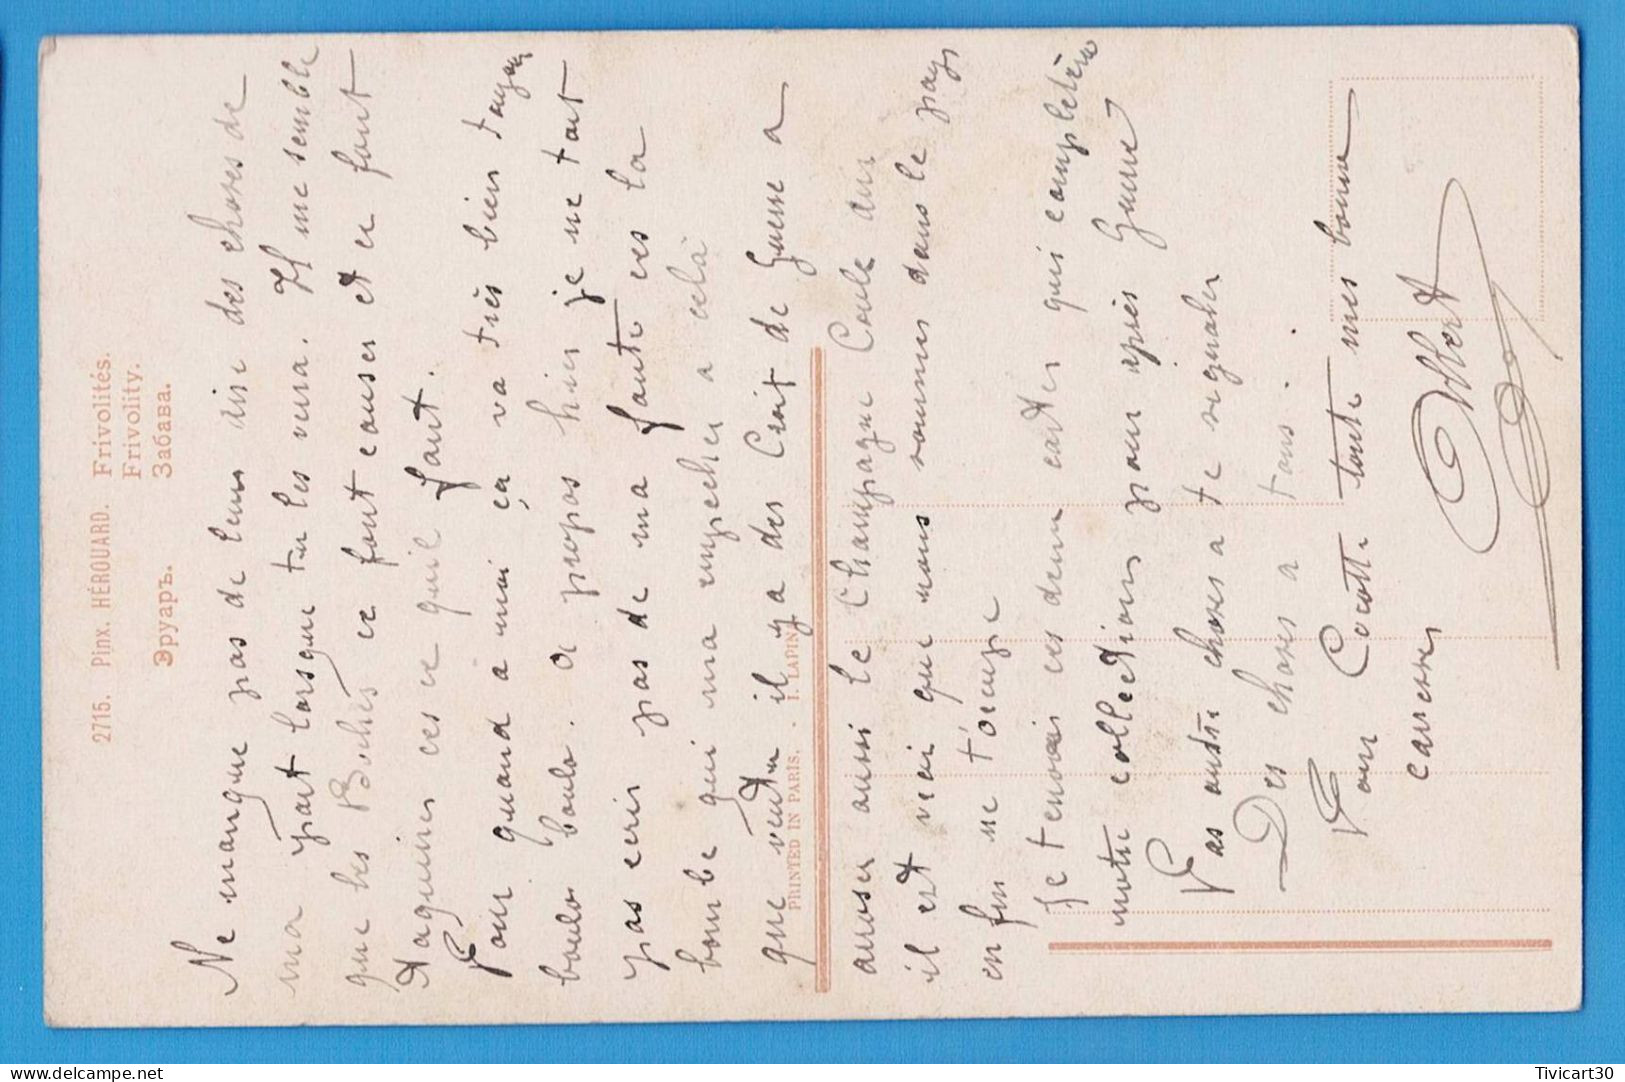 2715. Pinx. HÉROUARD. Frivolités.
Frivolity.
Эруаръ. Забава.
Ne manque pas de leur dire des choses de
ma part lorsque tu les verra. Il me semble
que les Boches ce font causer et ce font
taquiner ces ce quil faut.
Pour quand a moi ça va très bien toujour
boulo boulo. a propos hier je ne tait
pas ecris pas de ma faute ces la
bombe qui ma empecher a celà
que veutu il y a des Croit de Guerre a
PRINTED IN PARIS. - I. LAPINA
arroser aussi le Champagne Coule aussi
il est vrai que nous sommes dans le pays
enfin ne t'occupe
Je tenvoi ces deux cartes qui complètera
notre collections pour après Guerre
Pas autre choses a te signaler
Des choses a tous.
Ton Cocott. toute mes bonne
caresses
Albert
Tivicart30